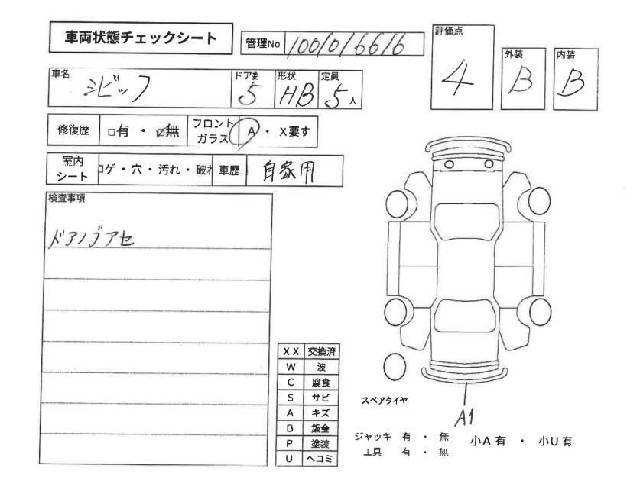 車両状態チェックシート
管理No 1000106616
評価点 4
外装 B
内装 B
車名 シビック
ドア数 5
形状 HB
定員 5人
修復歴 □有・☑無
フロントガラス A・X要す
室内シート コゲ・穴・汚れ・破れ
車歴 自家用
検査事項
ドアノブアセ
XX 交換済
W 波
C 腐食
S サビ
A キズ
B 鈑金
P 塗装
U ヘコミ
スペアタイヤ
A1
ジャッキ 有・無
工具 有・無
小A有・小U有